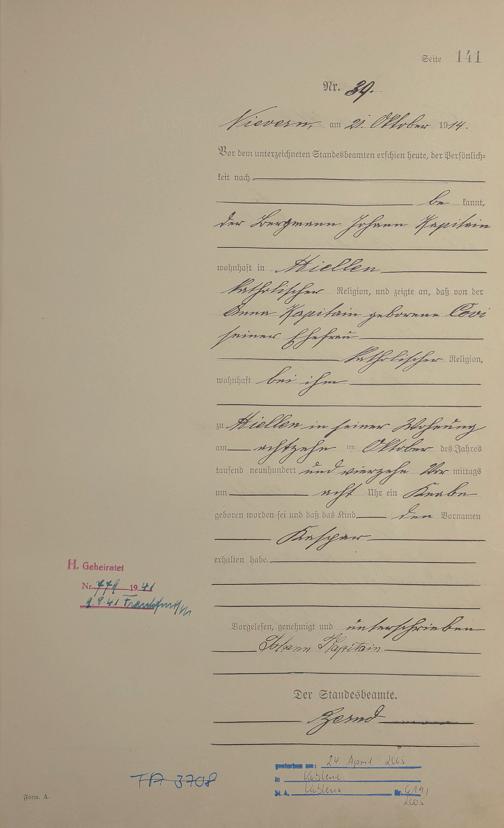 Seite 141
Nr. 39.
Nievern, am 21. Oktober 1914.
Vor dem unterzeichneten Standesbeamten erschien heute, der Persönlich=
keit nach
be kannt,
der Bergmann Johann Kapitain
wohnhaft in Miellen
katholischer Religion, und zeigte an, daß von der
Anna Kapitain geborene
seiner Ehefrau
katholischer Religion,
wohnhaft bei ihm
zu Miellen in seiner Wohnung
am achtzehn im Oktober des Jahres
tausend neunhundert und vierzehn Vor mittags
um acht Uhr ein Knabe
geboren worden sei und daß das Kind den Vornamen
Kaspar
erhalten habe.
Vorgelesen, genehmigt und unterschrieben
Johann Kapitain
Der Standesbeamte.
H. Geheiratet
Nr. 1941
gestorben am: 24. April 2005
in Koblenz
St. A. Koblenz Nr.
2005
3708
Form. A.